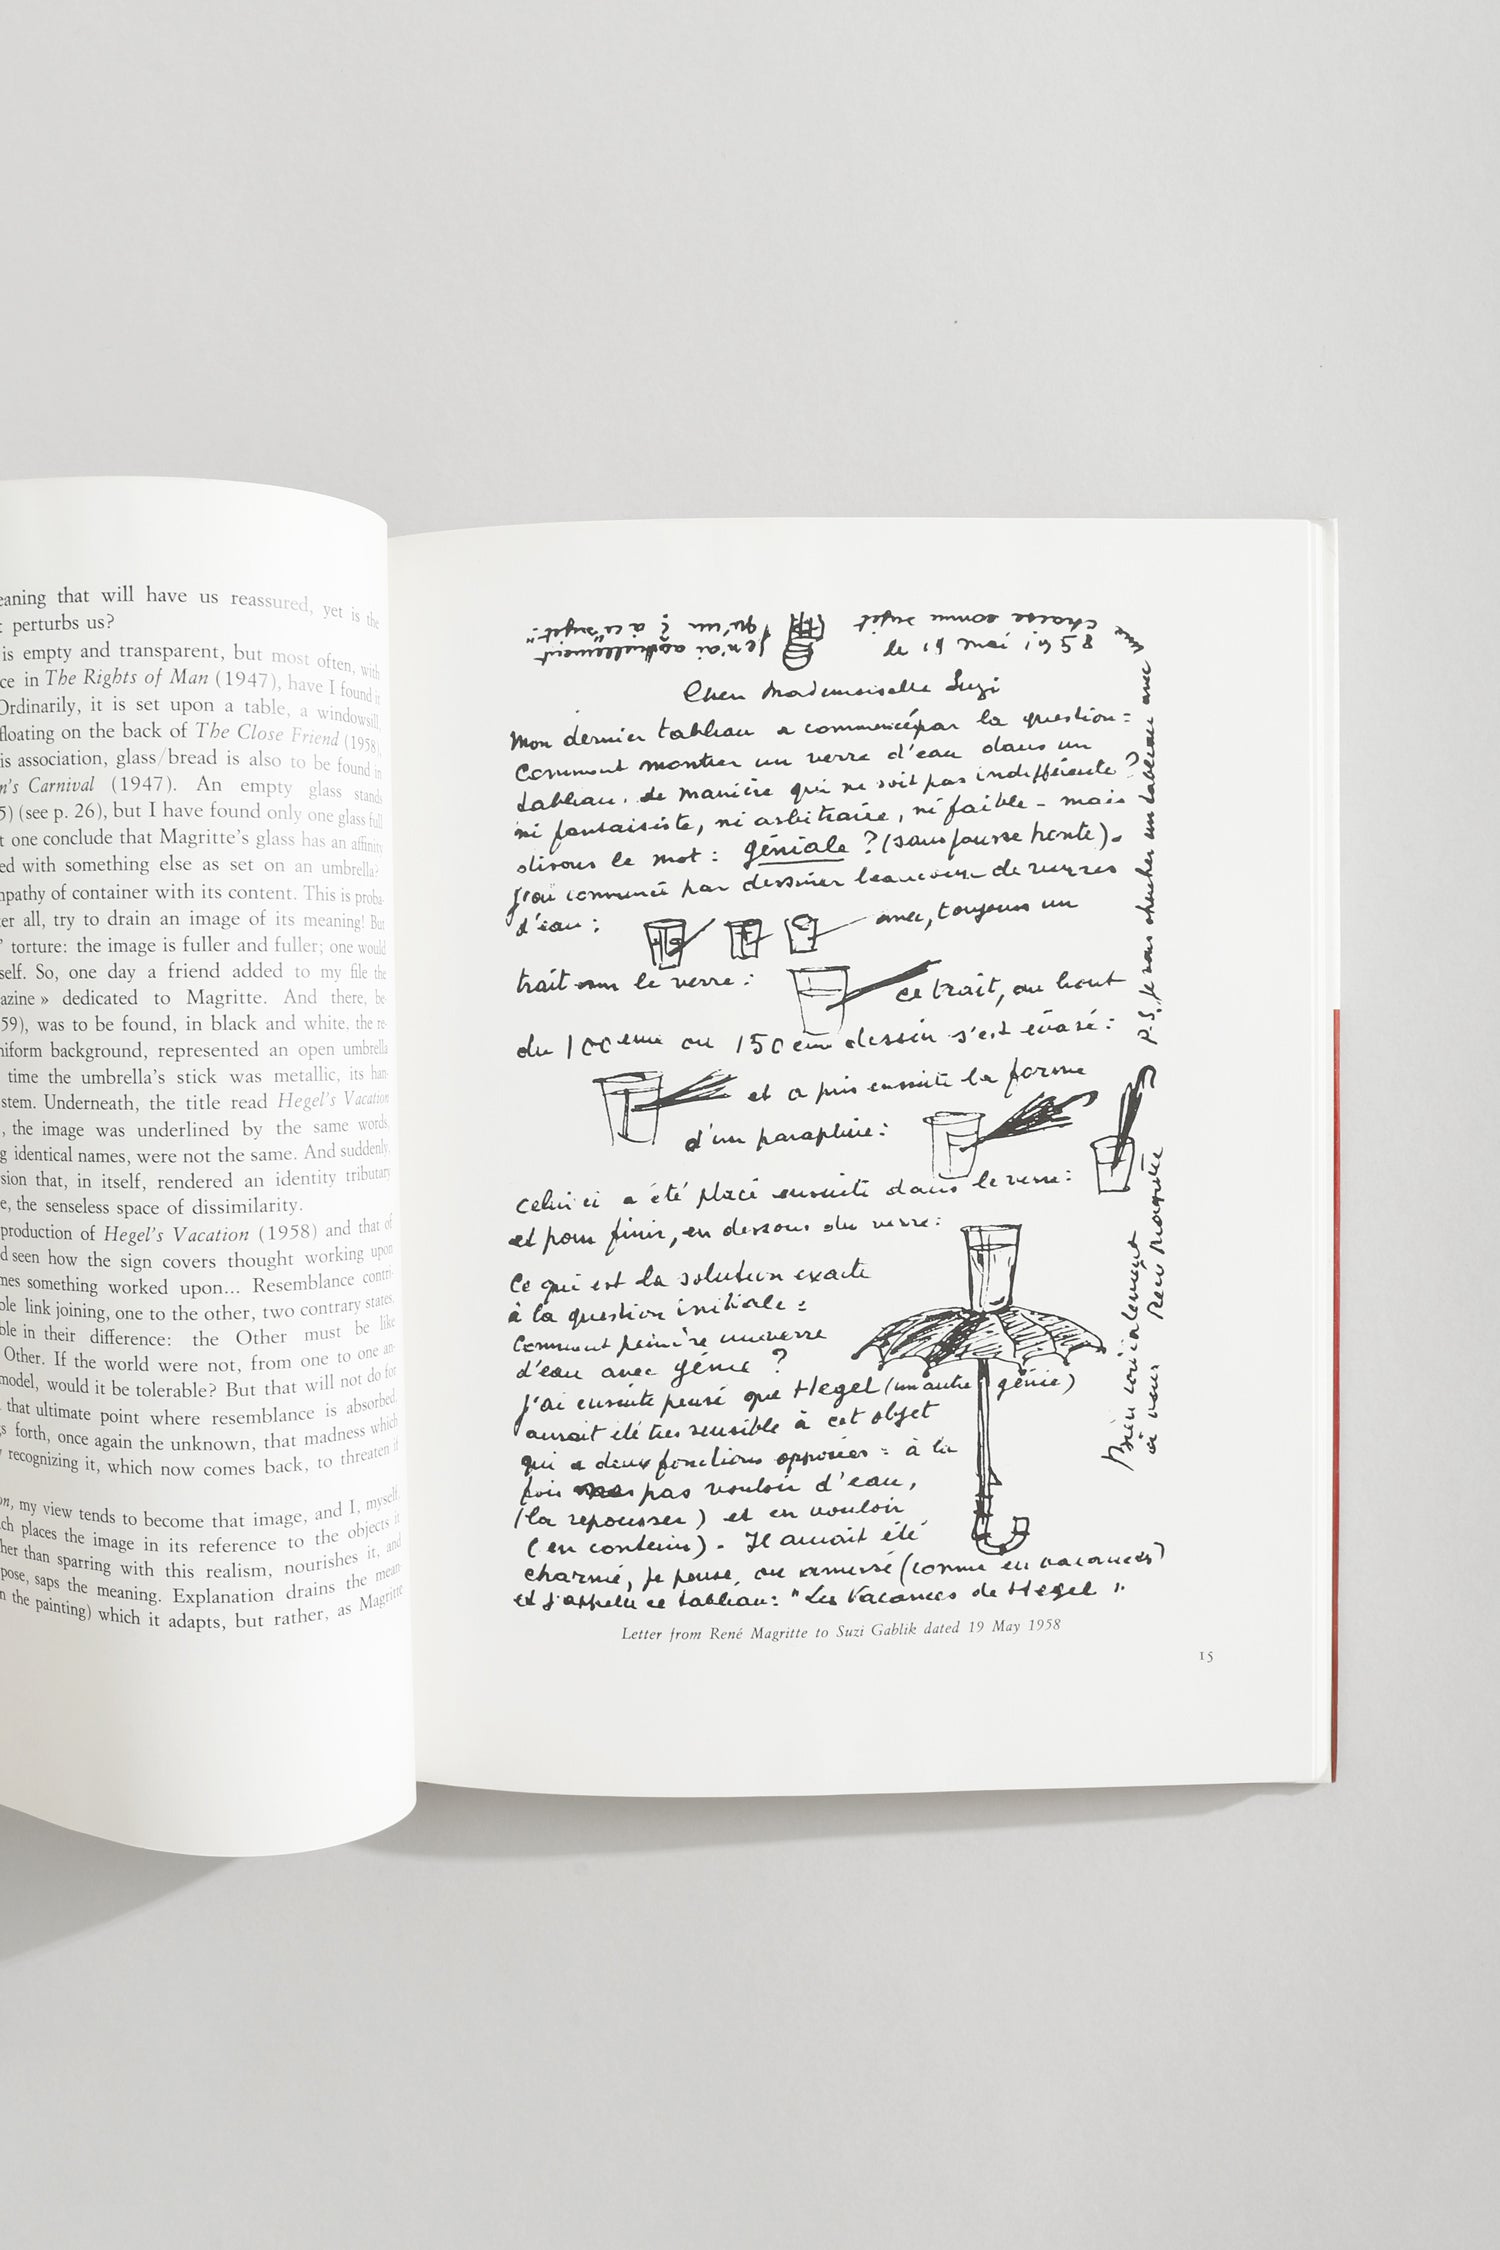 eaning that will have us reassured, yet is the
t perturbs us?
is empty and transparent, but most often, with
ce in The Rights of Man (1947), have I found it
Ordinarily, it is set upon a table, a windowsill,
floating on the back of The Close Friend (1958),
is association, glass/bread is also to be found in
n's Carnival (1947). An empty glass stands
5) (see p. 26), but I have found only one glass full
t one conclude that Magritte's glass has an affinity
ed with something else as set on an umbrella?
mpathy of container with its content. This is proba-
ter all, try to drain an image of its meaning! But
" torture: the image is fuller and fuller; one would
self. So, one day a friend added to my file the
azine » dedicated to Magritte. And there, be-
59), was to be found, in black and white, the re-
niform background, represented an open umbrella
time the umbrella's stick was metallic, its han-
stem. Underneath, the title read Hegel's Vacation
, the image was underlined by the same words,
g identical names, were not the same. And suddenly,
sion that, in itself, rendered an identity tributary
e, the senseless space of dissimilarity.
production of Hegel's Vacation (1958) and that of
d seen how the sign covers thought working upon
mes something worked upon... Resemblance contri-
ole link joining, one to the other, two contrary states,
ble in their difference: the Other must be like
Other. If the world were not, from one to one an-
model, would it be tolerable? But that will not do for
that ultimate point where resemblance is absorbed,
gs forth, once again the unknown, that madness which
y recognizing it, which now comes back, to threaten it
on, my view tends to become that image, and I, myself,
ch places the image in its reference to the objects it
her than sparring with this realism, nourishes it, and
pose, saps the meaning. Explanation drains the mean-
n the painting) which it adapts, but rather, as Magritte
le 19 mai 1958
Chère Mademoiselle Suzi
Mon dernier tableau a commencé par la question :
Comment montrer un verre d'eau dans un
tableau, de manière qui ne soit pas indifférente ?
ni fantaisiste, ni arbitraire, ni faible - mais
disons le mot : géniale ? (sans fausse honte).
J'ai commencé par dessiner beaucoup de verres
d'eau :
avec, toujours un
trait sur le verre :
ce trait, au bout
du 100ème ou 150ème dessin s'est évasé :
et a pris ensuite la forme
d'un parapluie :
Celui ci a été placé ensuite dans le verre :
et pour finir, en dessous du verre :
Ce qui est la solution exacte
à la question initiale :
Comment peindre un verre
d'eau avec génie ?
J'ai ensuite pensé que Hegel (un autre génie)
aurait été très sensible à cet objet
qui a deux fonctions opposées : à la
fois pas vouloir d'eau,
(la repousser) et en vouloir
(en contenir). Il aurait été
charmé, je pense, ou amusé (comme en vacances)
et j'appelle ce tableau : "Les Vacances de Hegel".
Bien cordialement
à vous René Magritte
P.S. Je vais chercher un tableau avec une
chaise comme sujet
Je n'ai actuellement
qu'un ? à ce "sujet"
Letter from René Magritte to Suzi Gablik dated 19 May 1958
15